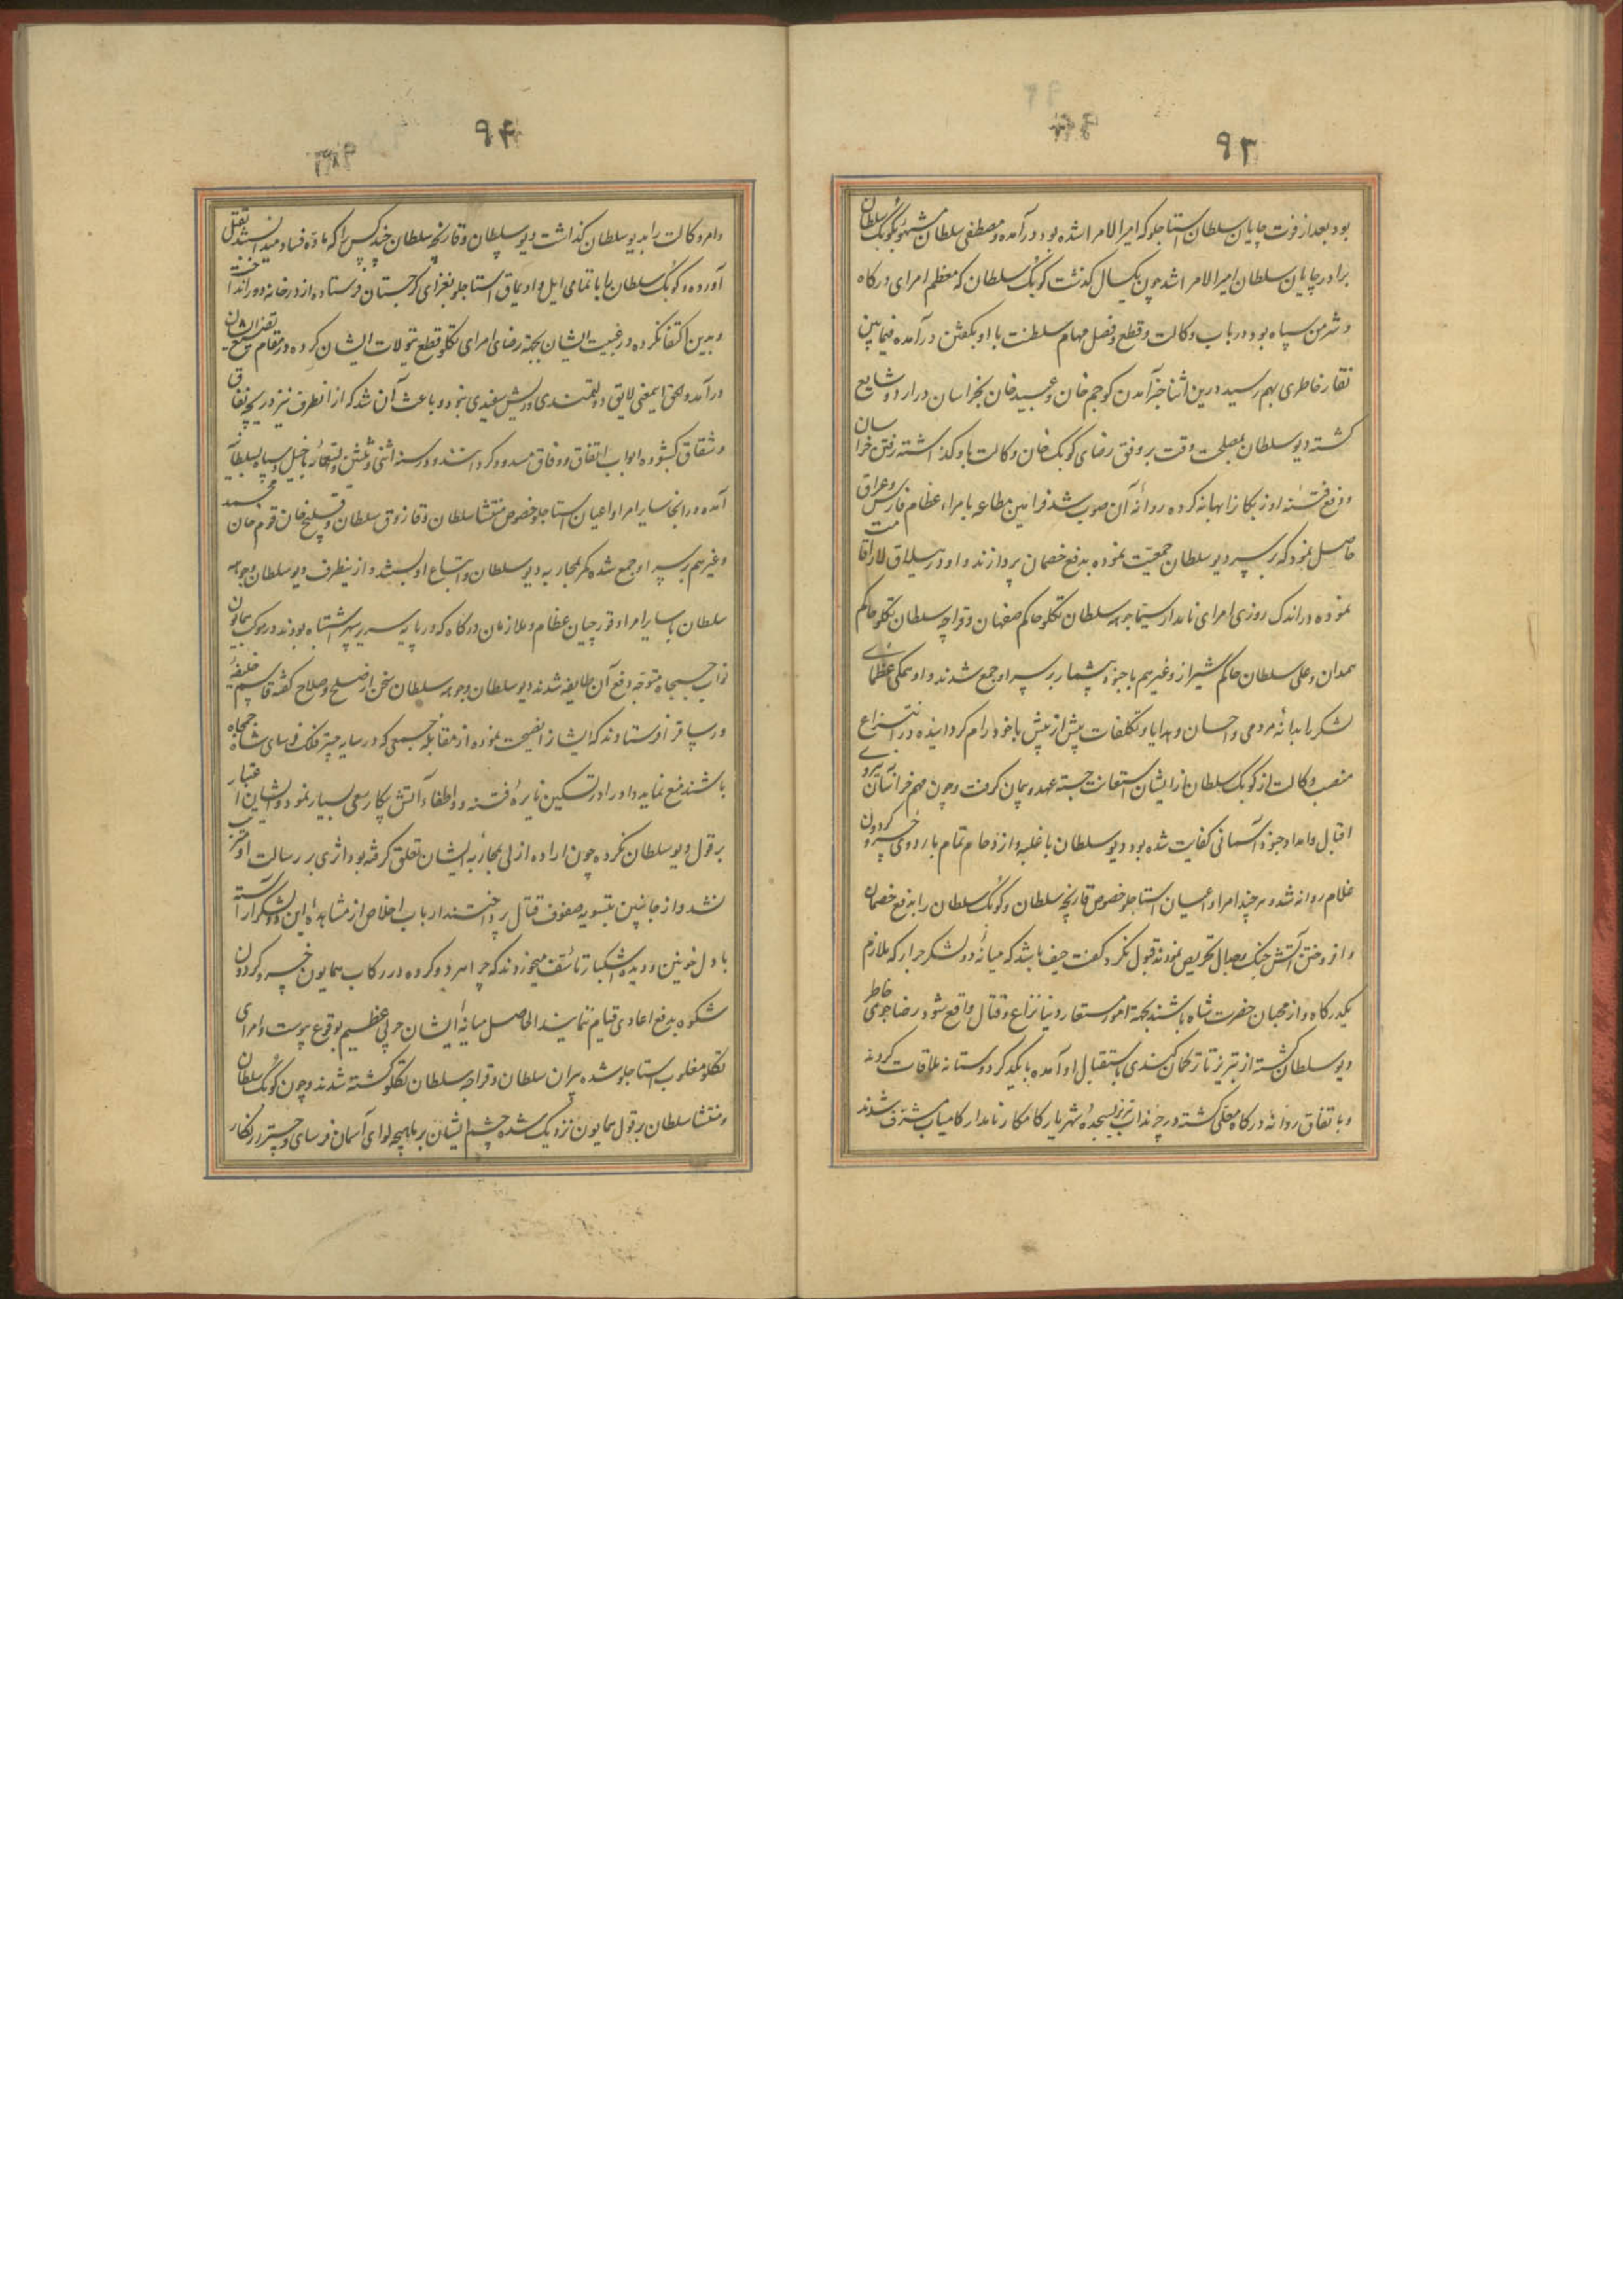 ۹۳
بود بعد از فوت چایان سلطان استاجلو که امیر الامرا شده بود درآمده و مصطفی سلطان مشهور بکوپک سلطان
برادر چایان سلطان امیر الامرا شد چون یکسال کذشت کوپک سلطان که معظم امرای درکاه
و شرمن سپاه بود در باب وکالت و قطع و فصل مهام سلطنت با او بکفتن درآمده فیمابین
نقار خاطری بهم رسید درین اثنا خبر آمدن کوجم خان و عبید خان بخراسان در اردو شایع
کشته دیو سلطان بمصلحت وقت بر وفق رضای کوپک خان وکالت باو کذاشته رفتن خراسان
و رفع فتنه اوزبکانرا بهانه کرده روانه آن صوب شد فرامین مطاعه بامراء عظام فارس و عراق
حاصل نمود که بر سر دیو سلطان جمعیت نموده بدفع خصمان پردازند و او در ییلاق لار اقامت
نموده در اندک روزی امرای نامدار سیما جوهه سلطان تکلو حاکم صفهان و قراجه سلطان تکلو حاکم
همدان و علی سلطان حاکم شیراز و غیرهم با جنود بیشمار بر سر او جمع شدند و او همکی عظمای
لشکر را بدانه مردمی و احسان و هدایا و تکلفات بیش از پیش با خود رام کردانیده در انتزاع
منصب وکالت از کوپک سلطان از ایشان استعانت جسته عهد و پیمان کرفت و چون مهم خراسان به نیروی
اقبال و امداد جنود آسمانی کفایت شده بود دیو سلطان با غلبه و ازدحام تمام باردوی خسرو کردون
غلام روانه شد و هر چند امرا و اعیان استاجلو خصوص قارنجه سلطان و کوپک سلطان را بدفع خصمان
و افروختن آتش جنک و جدال تحریص نمودند قبول نکرد و کفت حیف باشد که میانه دو لشکر جرار که ملازم
یکدرکاه و از محبان حضرت شاه باشند بجهة امور مستعار دنیا نزاع و قتال واقع شود رضاجوی خاطر
دیو سلطان کشته از تبریز تا ترکمان کندی باستقبال او آمده با یکدیکر دوستانه ملاقات کردند
و باتفاق روانه درکاه معلی کشته در چرنداب تبریز بسجده شهریار کامکار نامدار کامیاب مشرف شدند
۹۴
و امر وکالت را بدیو سلطان کذاشت دیو سلطان و قارنجه سلطان چند کس را که ماده فساد میدانستند بقتل
آورده و کوپک سلطان را با تمامی ایل و اویماق استاجلو بغزای کرجستان فرستاده از درخانه دور انداخت
و بدین اکتفا نکرده در غیبت ایشان بجهة رضای امرای تکلو قطع تیولات ایشان کرده در مقام تضییع ایشان
درآمد و الحق ایمعنی لایق دولتمندی و ریش سفیدی نبود و باعث آن شد که از انطرف نیز دریچه نفاق
و شقاق کشوده ابواب اتفاق و وفاق مسدود کرداندند و در سنه اثنی و ثلثین و تسعمائه با خیل و سپاه بسلطانیه
آمده در انجا سایر امرا و اعیان استاجلو خصوص منتشا سلطان و قازوق سلطان و قلیج خان قوم خان محمد
و غیرهم بر سر او جمع شده کمر بمحاربه دیو سلطان و اتباع او بستند و از ینطرف دیو سلطان و جوهه
سلطان با سایر امرا و قورچیان عظام و ملازمان درکاه که در پایه سریر سپهر اشتباه بودند در موکب همایون
نواب جمجاه متوجه دفع آن طایفه شدند دیو سلطان و جوهه سلطان سخن از صلح و صلاح کفته قاسم خلیفهٔ
ورساقرا فرستادند که ایشانرا نصیحت نموده از مقابله جمعی که در سایه چتر فلک فرسای شاه جمجاه
باشند منع نماید و او را در تسکین نایره فتنه و اطفاء آتش پیکار سعی بسیار نمود و ایشان اعتبار
بر قول دیو سلطان نکرده چون اراده ازلی بمحاربه ایشان تعلق کرفته بود اثری بر رسالت او مترتب
نشد و از جانبین بتسویه صفوف قتال پرداختند ارباب اخلاص از مشاهده این دو لشکر آراسته
با دل خونین و دیده اشکبار تاسف میخوردند که چرا هر دو کروه در رکاب همایون خسرو کردون
شکوه بدفع اعادی قیام ننمایند الحاصل میانه ایشان حربی عظیم بوقوع پیوست و امرای
تکلو مغلوب استاجلو شده بیران سلطان و قراجه سلطان تکلو کشته شدند و چون کوپک سلطان
و منتشا سلطان بر قول همایون نزدیک شده چشم ایشان بر ماهچه لوای آسمان فرسای و چتر زرنکار